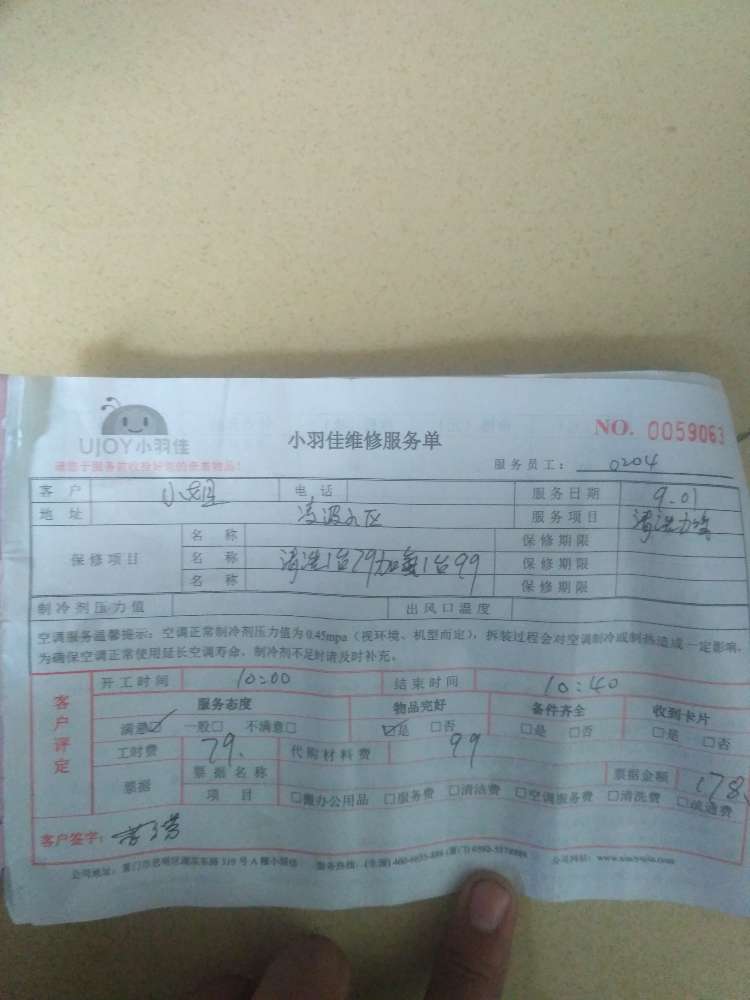 UJOY小羽佳
小羽佳维修服务单
NO. 0059063
服务员工: 0204
客户 小姐 电话 服务日期 9.01
地址 凌波小区 服务项目 清洗
保修项目 名称 保修期限
名称 清洗1台79加氟1台99 保修期限
名称 保修期限
制冷剂压力值 出风口温度
空调服务温馨提示:空调正常制冷剂压力值为0.45mpa(视环境、机型而定),拆装过程会对空调制冷或制热造成一定影响,
为确保空调正常使用延长空调寿命,制冷剂不足时请及时补充。
客户评定
开工时间 10:00 结束时间 10:40
服务态度 物品完好 备件齐全 收到卡片
满意☑ 一般□ 不满意□ ☑是 □否 □是 □否 □是 □否
工时费 79. 代购材料费 99
票据 票据名称 票据金额 178.
项目 □搬办公用品 □服务费 □清洁费 □空调服务费 □清洗费 □疏通费
客户签字: